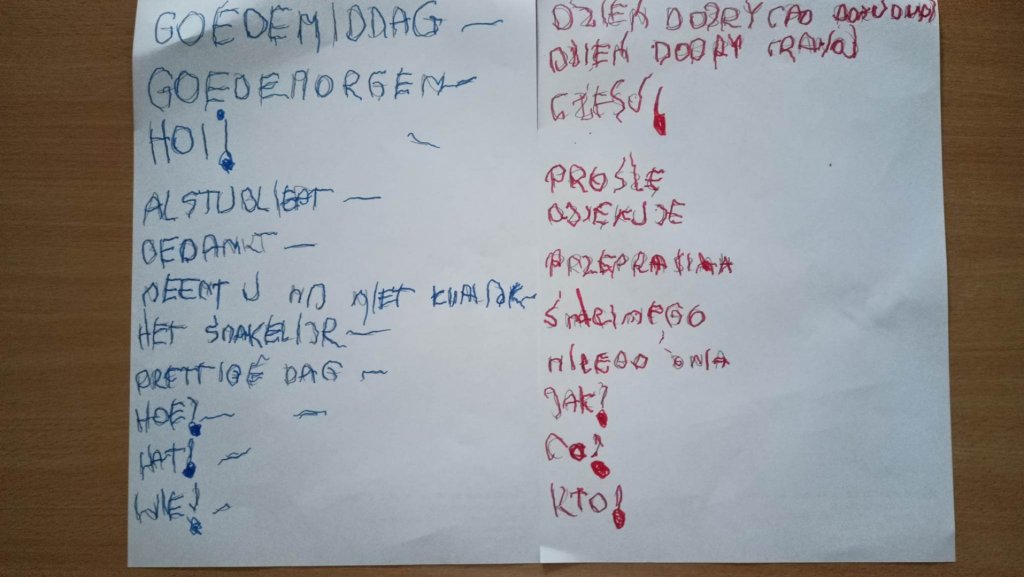 GOEDEMIDDAG –
GOEDEMORGEN –
HOI!
ALSTUBLIEAT –
BEDANKT –
NEEMT U MIJ NIET KWALIJK –
HET SMAKELIJR –
PRETTIGE DAG –
HOE? –
WAT? –
WIE? –
DZIEŃ DOBRY (PO
DZIEŃ DOBRY (RANO)
CZEŚĆ!
PROSZE
DZIEKUJE
PRZEPRASZAM
SMACZNEGO
MIŁEGO DNIA
JAK?
CO?
KTO?